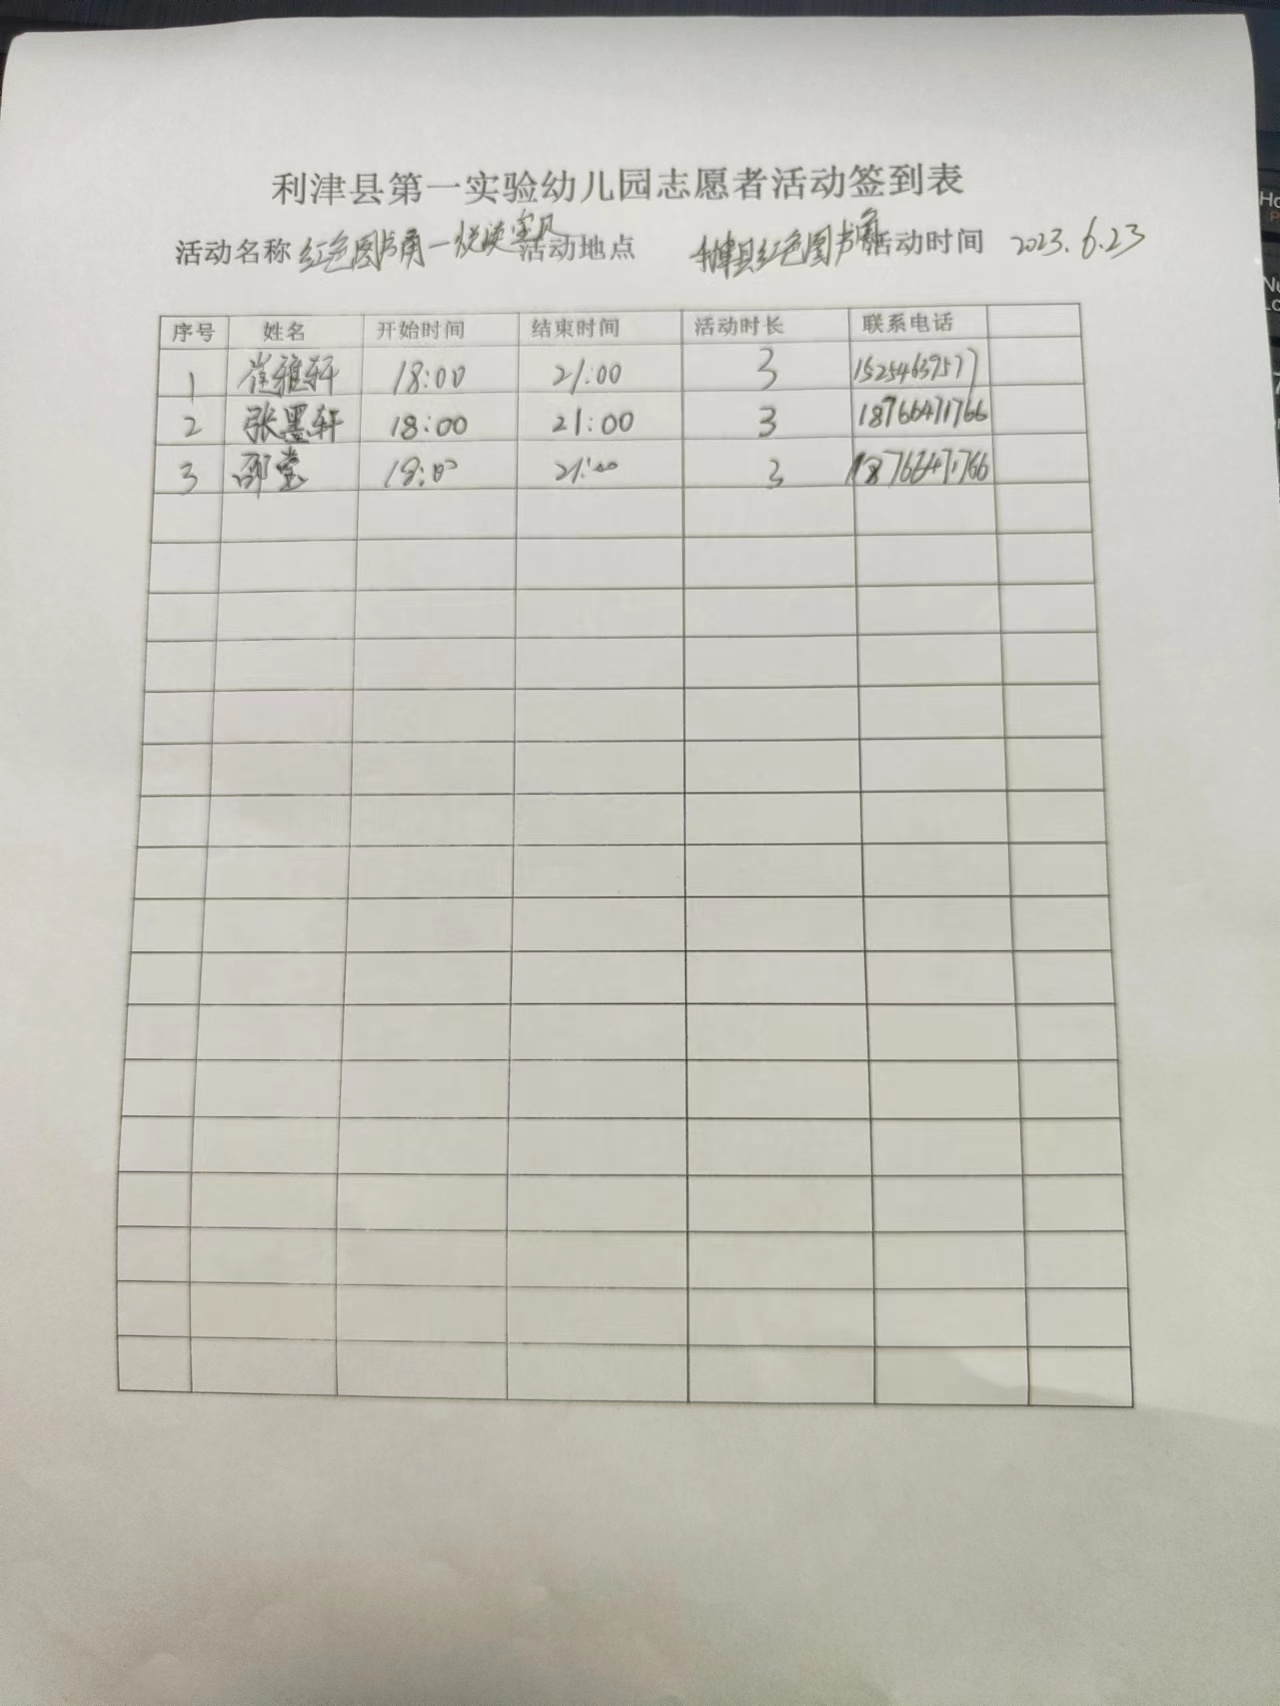 利津县第一实验幼儿园志愿者活动签到表
活动名称 红色图书角一悦读宝贝 活动地点 利津县红色图书角 活动时间 2023.6.23
序号 姓名 开始时间 结束时间 活动时长 联系电话
1 崔雅轩 18:00 21:00 3 15254639577
2 张墨轩 18:00 21:00 3 18766471766
3 邵莹 18:00 21:00 3 18766471766